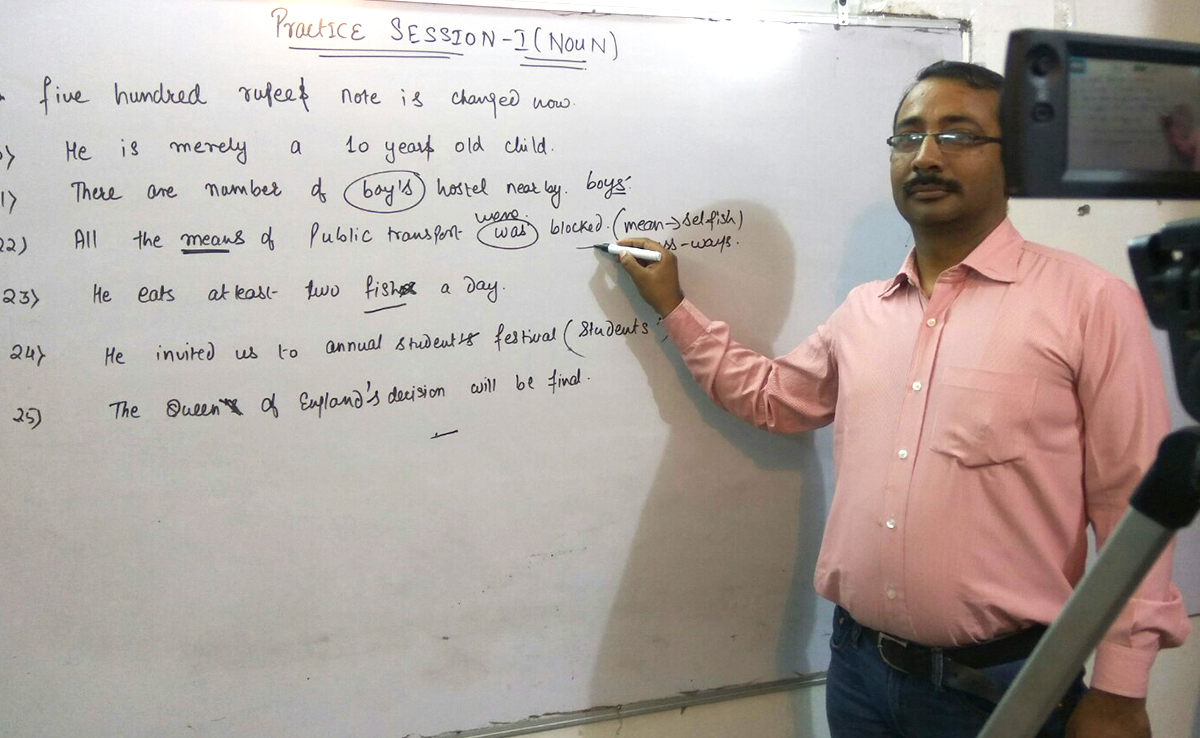 PRACTICE SESSION-I (NOUN)
five hundred rupees note is changed now.
He is merely a 10 years old child.
1) There are number of boy's hostel near by. boys'.
were
22) All the means of Public transport was blocked. (mean→selfish)
ss-ways.
23) He eats at least two fish a day.
24) He invited us to annual student's festival (students'
25) The Queen's of England's decision will be final.